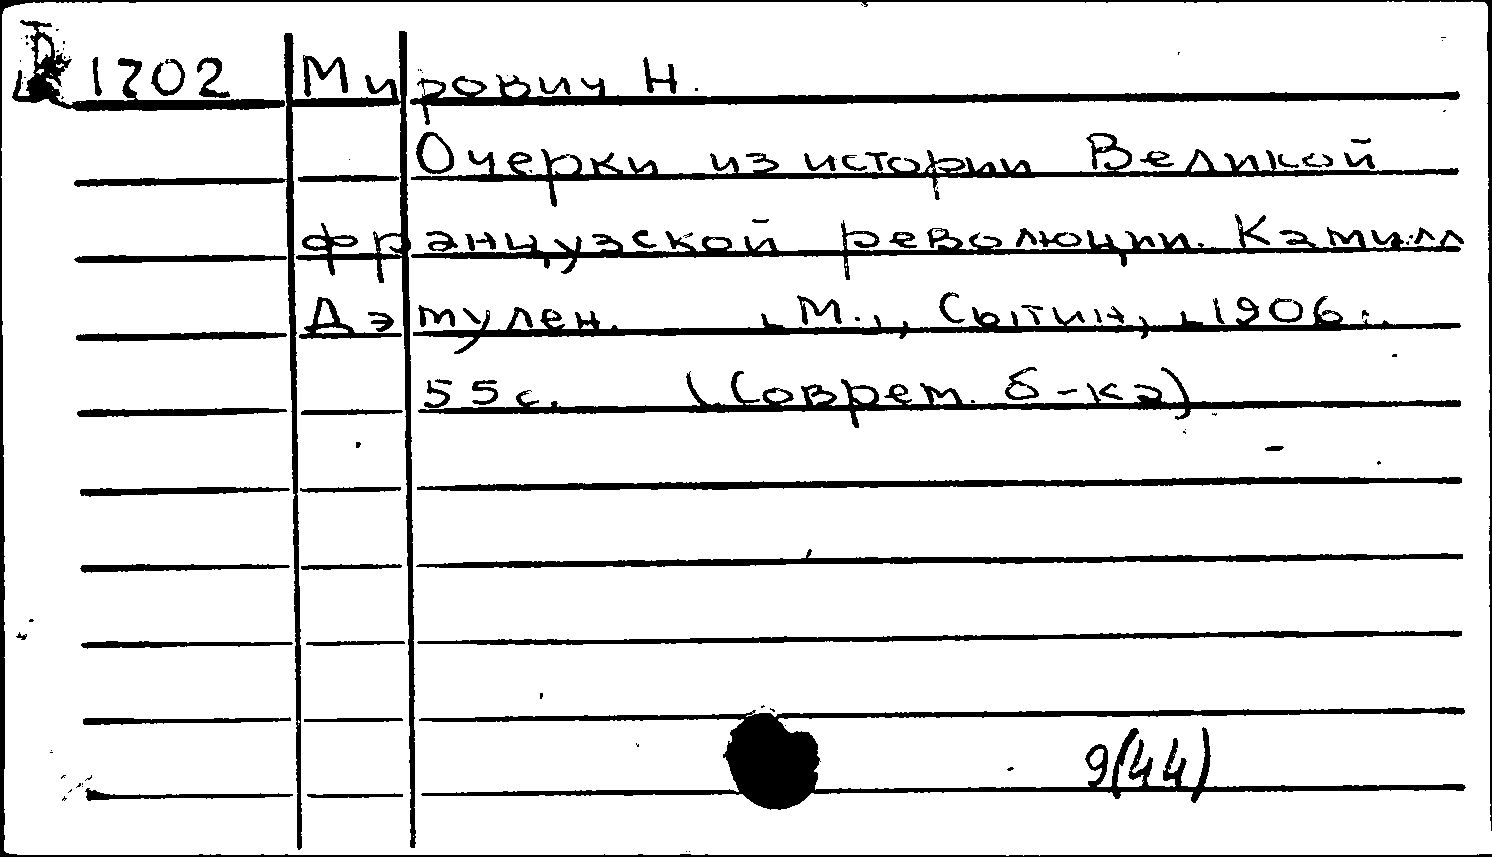 1702 Мирович Н.
Очерки из истории Великой
французской революции. Камилл
Дэмулен. М., Сытин, 1906.
55 с. (Соврем. б-ка)
9(44)